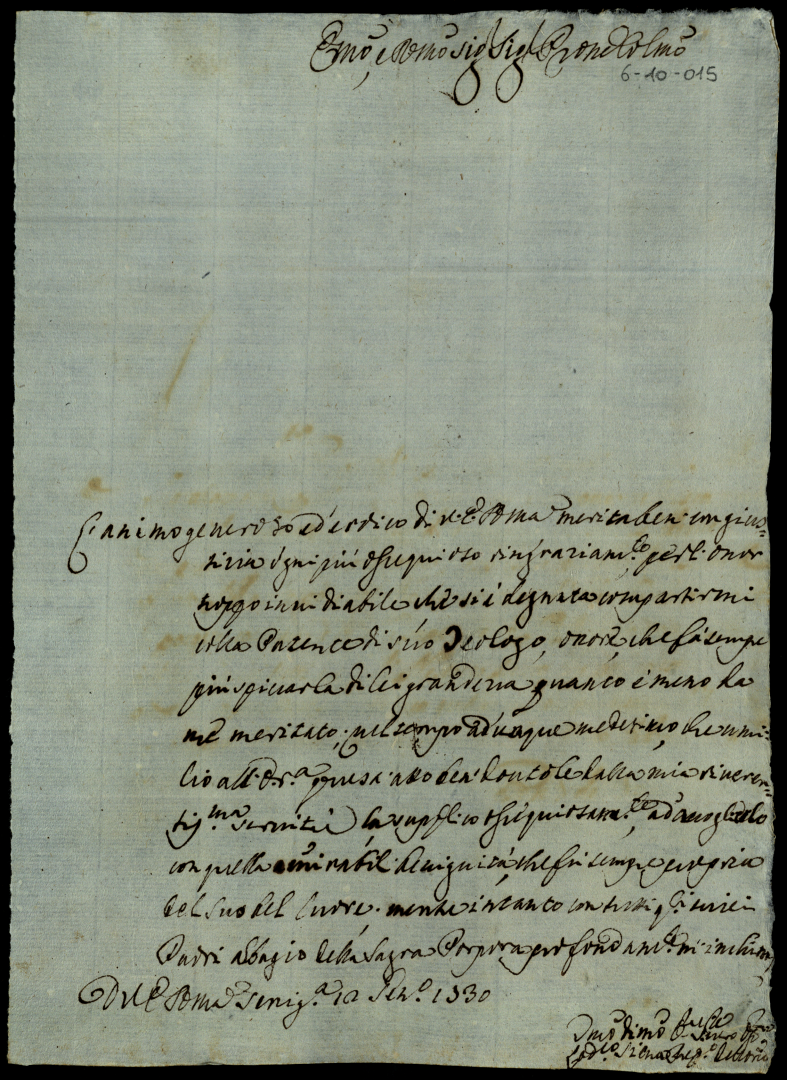 Emõ, e Rmõ Sig. Sig. Prone Colmõ
6-10-015
L'animo generoso ed eroico di V. E. Rma merita ben con gius=
tizia ogni più ossequioso ringraziam.to per l'onor
troppo invidiabile che si è degnata compartirmi
colla Patente di suo Teologo, onore, che fà sempre
più spiccar la di lei grandezza quanto è meno da
me meritato; nel tempo adunque medesimo, che umi=
lio all' questo atto ben dovutole dalla mia riveren=
tiss.ma servitù la supplico ossequiosam.te ad accoglierlo
con quella mirabil benignità, che fù sempre propria
del Suo bel Cuore. mentre intanto con tutti q.sti miei
Padri al bagio della Sagra Porpora profondam.te m'inchino
D V. E. Rma Senig.a 12 1730